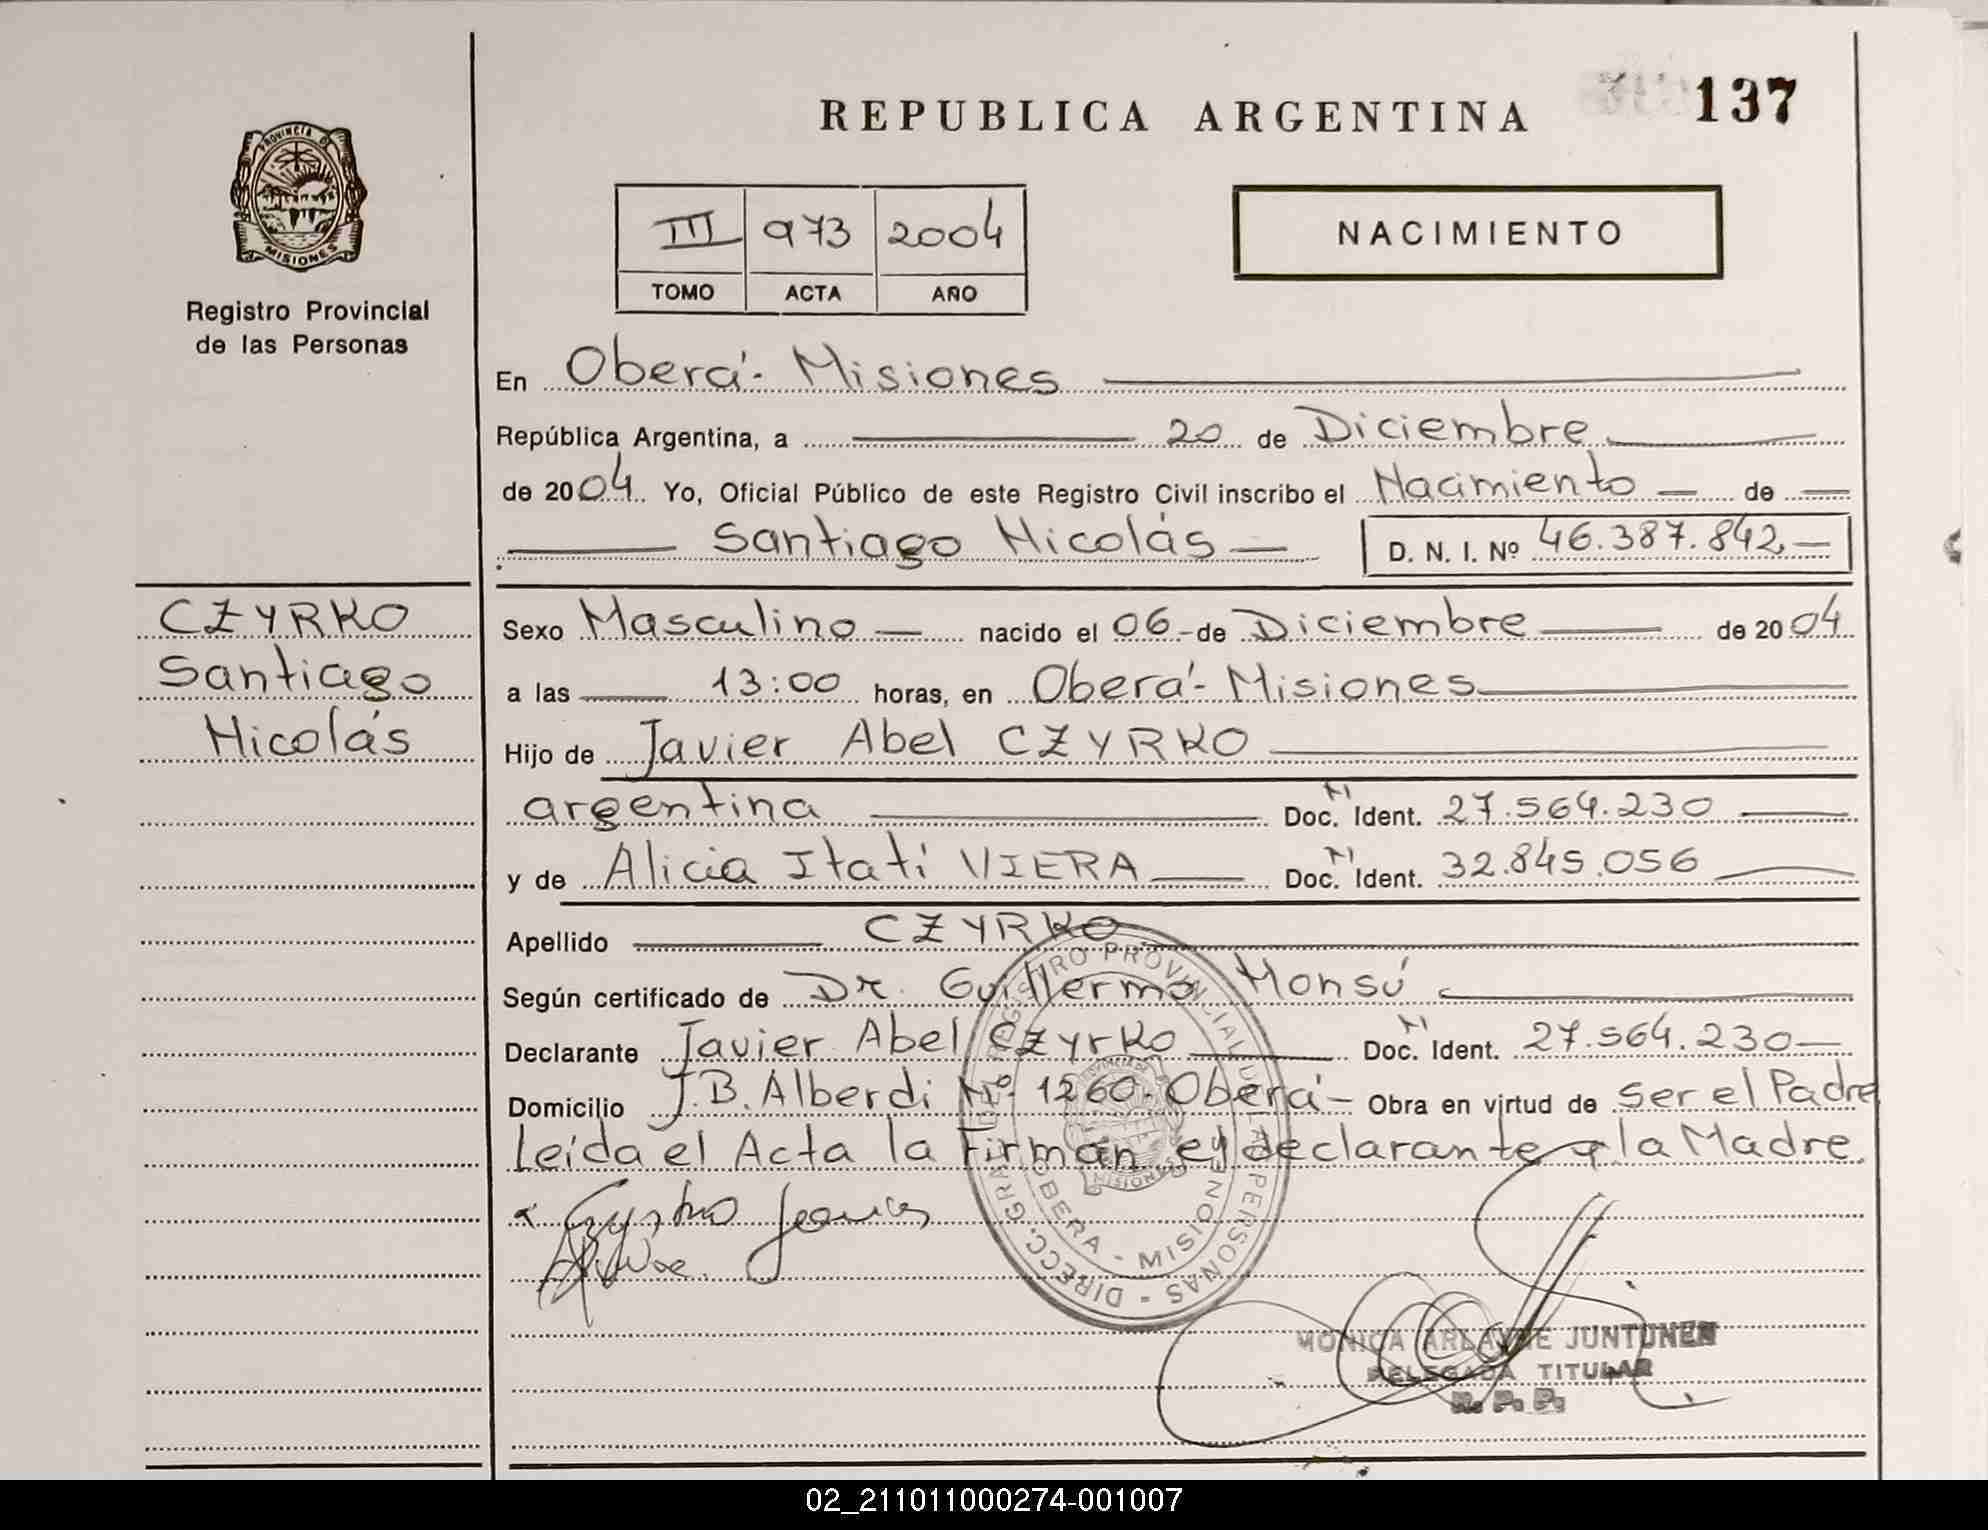 REPUBLICA ARGENTINA
137
PROVINCIA DE
MISIONES
Registro Provincial
de las Personas
III 973 2004
TOMO ACTA AÑO
NACIMIENTO
En Oberá - Misiones
República Argentina, a 20 de Diciembre
de 2004 Yo, Oficial Público de este Registro Civil inscribo el Nacimiento de
Santiago Nicolás D. N. I. Nº 46.387.842
CZYRKO
Santiago
Nicolás
Sexo Masculino nacido el 06 de Diciembre de 2004
a las 13:00 horas, en Oberá - Misiones
Hijo de Javier Abel CZYRKO
argentina Doc. N Ident. 27.564.230
y de Alicia Itatí VIERA Doc. N Ident. 32.845.056
Apellido CZYRKO
Según certificado de Dr. Guillermo Monsú
Declarante Javier Abel Czyrko Doc. N Ident. 27.564.230
Domicilio J.B. Alberdi Nº 1260 - Oberá - Obra en virtud de ser el Padre
Leída el Acta la Firman el declarante y la Madre.
REGISTRO PROVINCIAL DE LAS PERSONAS - DIRECC. GRAL.
PROVINCIA DE
MISIONES
OBERA - MISIONES
MONICA ARLAYNE JUNTUNEN
DELEGADA TITULAR
R. P. P.
02_211011000274-001007